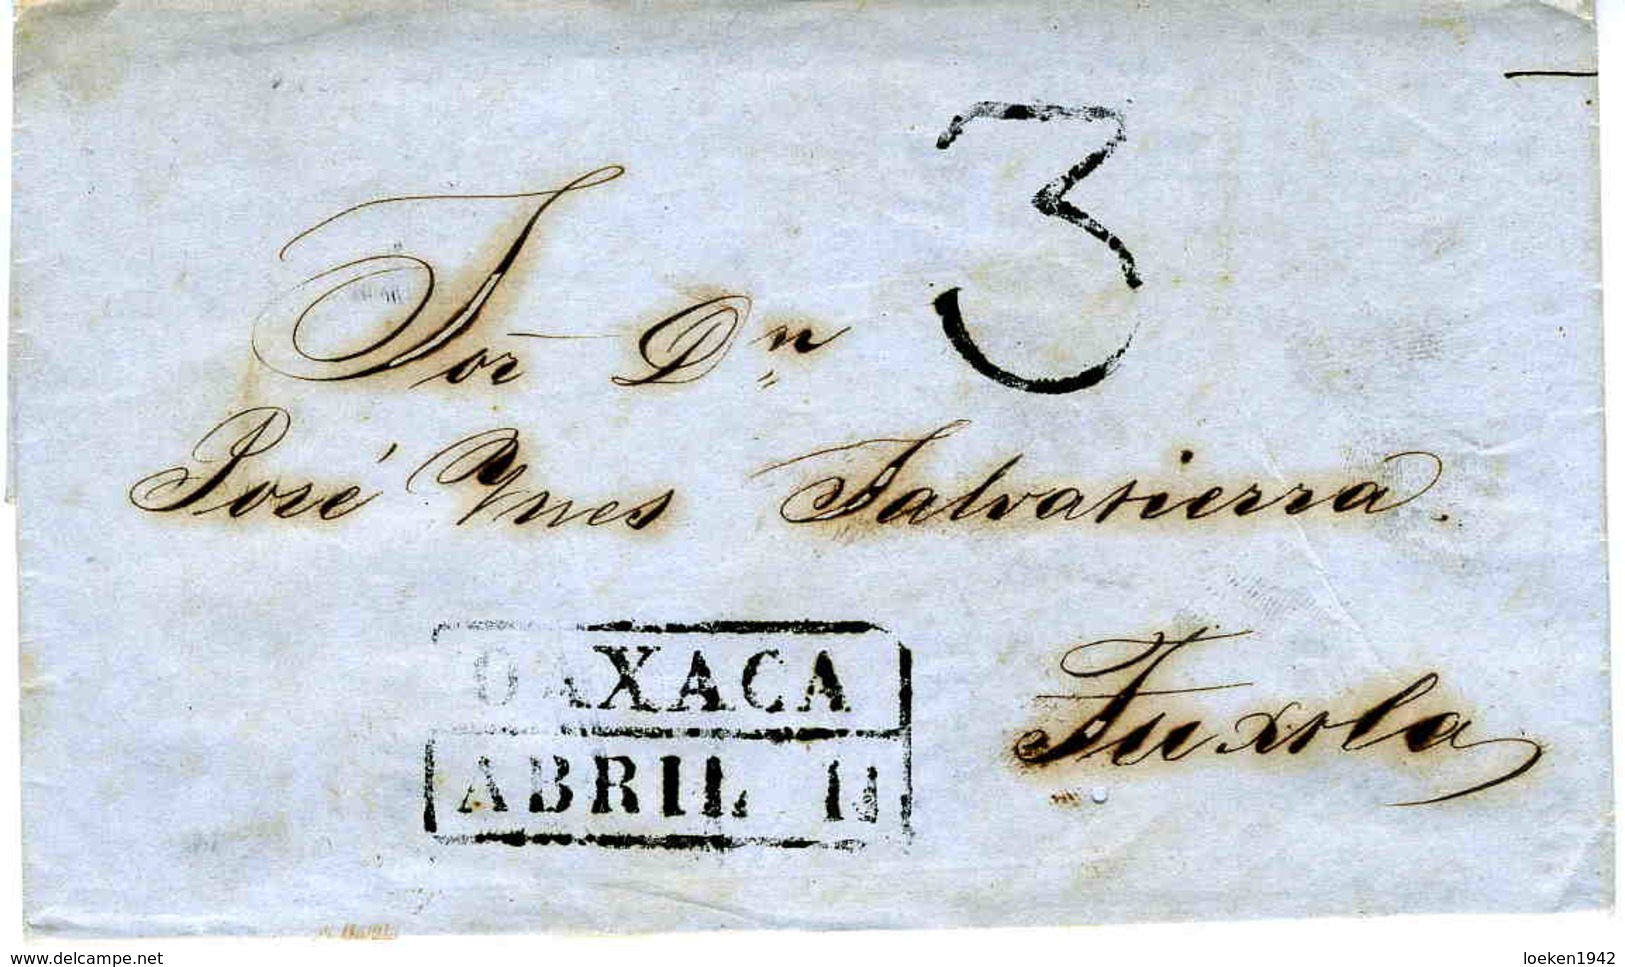 3
Sor Dn
José Ynes Salvatierra.
OAXACA
ABRIL 11
Juxtla
www.delcampe.net
loeken1942